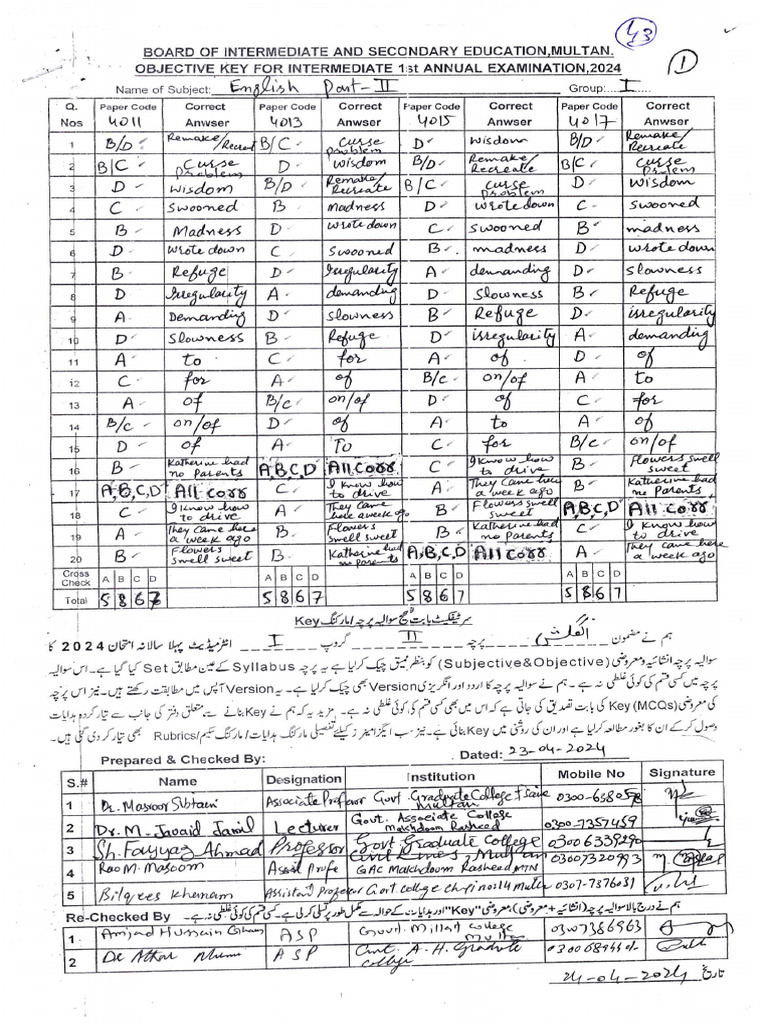 43
1
BOARD OF INTERMEDIATE AND SECONDARY EDUCATION,MULTAN.
OBJECTIVE KEY FOR INTERMEDIATE 1st ANNUAL EXAMINATION,2024
Name of Subject: English Part-II Group: I
Q. Nos Paper Code 4011 Correct Anwser Paper Code 4013 Correct Anwser Paper Code 4015 Correct Anwser Paper Code 4017 Correct Anwser
1 B/D Remake/Recreat B/C Curse problem D Wisdom B/D Remake/Recreate
2 B/C Curse problem D Wisdom B/D Remake/Recreate B/C Curse problem
3 D Wisdom B/D Remake/Recreate B/C Curse problem D Wisdom
4 C Swooned B Madness D Wrote down C Swooned
5 B Madness D Wrote down C Swooned B madness
6 D Wrote down C Swooned B madness D Wrote down
7 B Refuge D Irregularity A demanding D Slowness
8 D Irregularity A demanding D Slowness B Refuge
9 A Demanding D Slowness B Refuge D irregularity
10 D Slowness B Refuge D irregularity A demanding
11 A to C for A of D of
12 C for A of B/C on/of A to
13 A of B/C on/of D of C for
14 B/C on/of D of A to A of
15 D of A To C for B/C on/of
16 B Katherine had no parents A,B,C,D All corr C I know how to drive B Flowers smell sweet
17 A,B,C,D All corr C I know how to drive A They came here a week ago B Katherine had no parents
18 C I know how to drive A They came here a week ago B Flowers smell sweet A,B,C,D All corr
19 A They came here a week ago B Flowers smell sweet B Katherine had no parents C I know how to drive
20 B Flowers smell sweet B Katherine had no parents A,B,C,D All corr A They came here a week ago
Cross Check A B C D A B C D A B C D A B C D
Total 5 8 6 7 5 8 6 7 5 8 6 7 5 8 6 7
سرٹیفکیٹ بابت تصحیح سوالیہ پرچہ/مارکنگ Key
ہم نے مضمون انگلش پرچہ II گروپ I انٹرمیڈیٹ پہلا سالانہ امتحان 2024 کا
سوالیہ پرچہ انشائیہ و معروضی (Subjective&Objective) کو بنظر عمیق چیک کر لیا ہے یہ پرچہ Syllabus کے عین مطابق Set کیا گیا ہے۔ اس سوالیہ
پرچہ میں کسی قسم کی کوئی غلطی نہ ہے۔ ہم نے سوالیہ پرچہ کا اردو اور انگریزی Version بھی چیک کر لیا ہے۔ یہ Version آپس میں مطابقت رکھتے ہیں۔ نیز اس پرچہ
کی معروضی (MCQs) Key کی بابت تصدیق کی جاتی ہے کہ اس میں بھی کسی قسم کی کوئی غلطی نہ ہے۔ مزید یہ کہ ہم نے Key بنانے سے متعلق دفتر کی جانب سے تیار کردہ ہدایات
وصول کر کے ان کا بغور مطالعہ کر لیا ہے اور ان کی روشنی میں Key بنائی ہے۔ نیز سب ایگزامینرز کیلئے تفصیلی مارکنگ ہدایات/مارکنگ سکیم/Rubrics بھی تیار کر دی گئی ہیں۔
Prepared & Checked By: Dated: 23-04-2024
S.# Name Designation Institution Mobile No Signature
1 Dr. Masroor Sibtain Associate Professor Govt. Graduate College Multan
2 Dr. M. Javaid Jamil Lecturer Govt. Associate College Makhdoom Rasheed 0300-7357459
3 Sh. Fayyaz Ahmad Professor Govt Graduate College Civil Lines, Multan 03006339290
4 Rao M. Masoom Assist Profe GAC Makhdoom Rasheed MTN 03007320993
5 Bilqees Khanam Assistant Professor Govt College 14 Multan 0307-7376031
Re-Checked By ہم نے درج بالا سوالیہ پرچہ (انشائیہ + معروضی)، معروضی "Key" اور ہدایات کے حوالہ سے مکمل طور پر تسلی کر لی ہے۔ کسی قسم کی کوئی غلطی نہ ہے۔
1 Amjad Hussain ASP Govt. Millat College Multan 0307386963
2 Dr Athar ASP Govt. A. H. Graduate College
24-04-2024 تاریخ